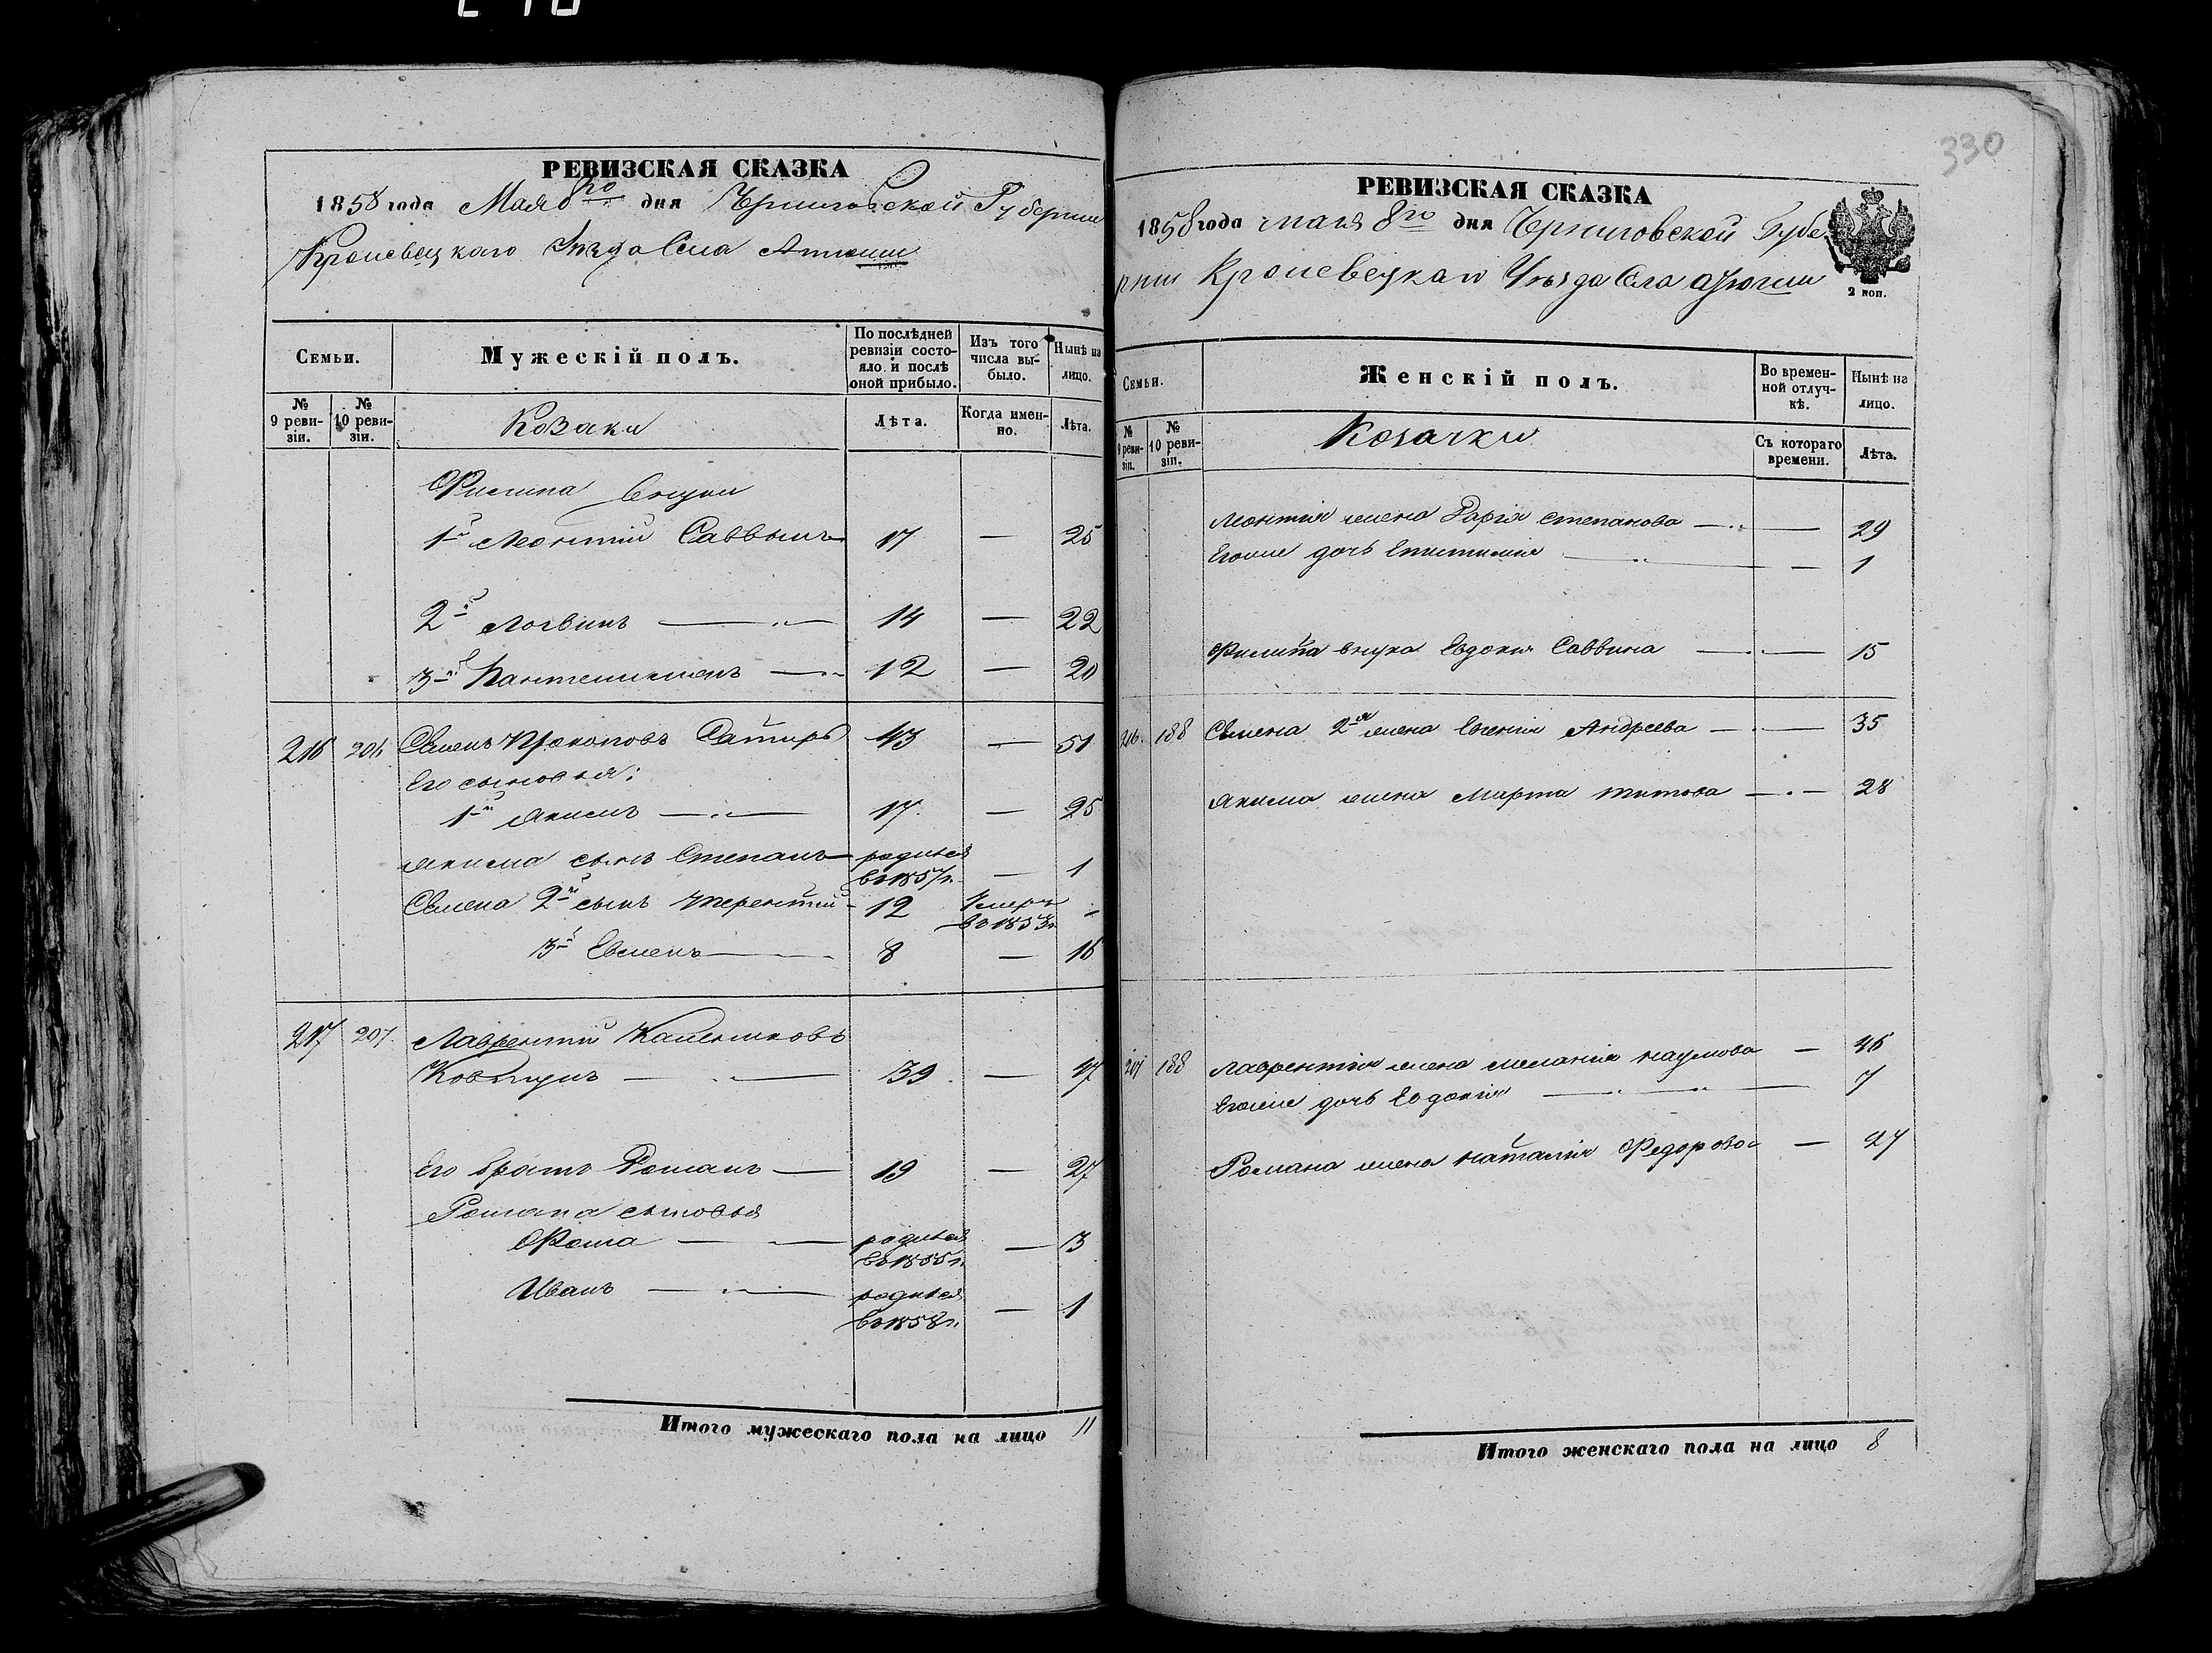 РЕВИЗСКАЯ СКАЗКА
1858 года Мая 8го дня Черниговской Губернии
Кролевецкаго Уезда Села Атюши
Семьи.
Мужескій полъ.
По послѣдней ревизіи состояло и послѣ оной прибыло.
Изъ того числа выбыло.
Нынѣ на лицо.
№ 9 ревизіи.
№ 10 ревизіи.
Козаки
Лѣта.
Когда именно.
Лѣта.
Филипа внуки
1й Леонтий Саввинъ 17 — 25
2й Логвинъ — 14 — 22
3й Пантелимонъ — 12 — 20
216 206 Семенъ Прокоповъ 43 — 51
Его сыновья:
1й Якимъ — 17 — 25
Якима сынъ Степанъ — родился в 1857 г. — 1
Семена 2й сынъ Терентий — 12 Умеръ в 1853 г. —
3й Евменъ — 8 — 16
217 207. Лаврентий
Ковтунъ — 39 — 47
Его братъ Романъ — 19 — 27
Романа сыновья
Фома — родился в 1855 г. — 3
Иванъ — родился в 1858 г. — 1
Итого мужескаго пола на лицо 11
330
РЕВИЗСКАЯ СКАЗКА
1858 года мая 8го дня Черниговской Губе
рнии Кролевецкаго Уъзда Села Атюши
2 коп.
Семьи.
Женскій полъ.
Во временной отлучкѣ.
Нынѣ на лицо.
№ 9 ревизіи.
№ 10 ревизіи.
Козачки
Съ котораго времени.
Лѣта.
Леонтия жена Степанова — — 29
Егоже дочь Епистимия — — 1
Филипа внука Евдокия Саввина — — 15
216. 188 Семена 2я жена Евгения Андреева — — 35
Якима жена Марта Титова — — 28
217 188 Лаврентия жена Мелания Наумова — 46
Егоже дочь Евдокия — — 7
Романа жена Наталия Федорова — 27
Итого женскаго пола на лицо 8